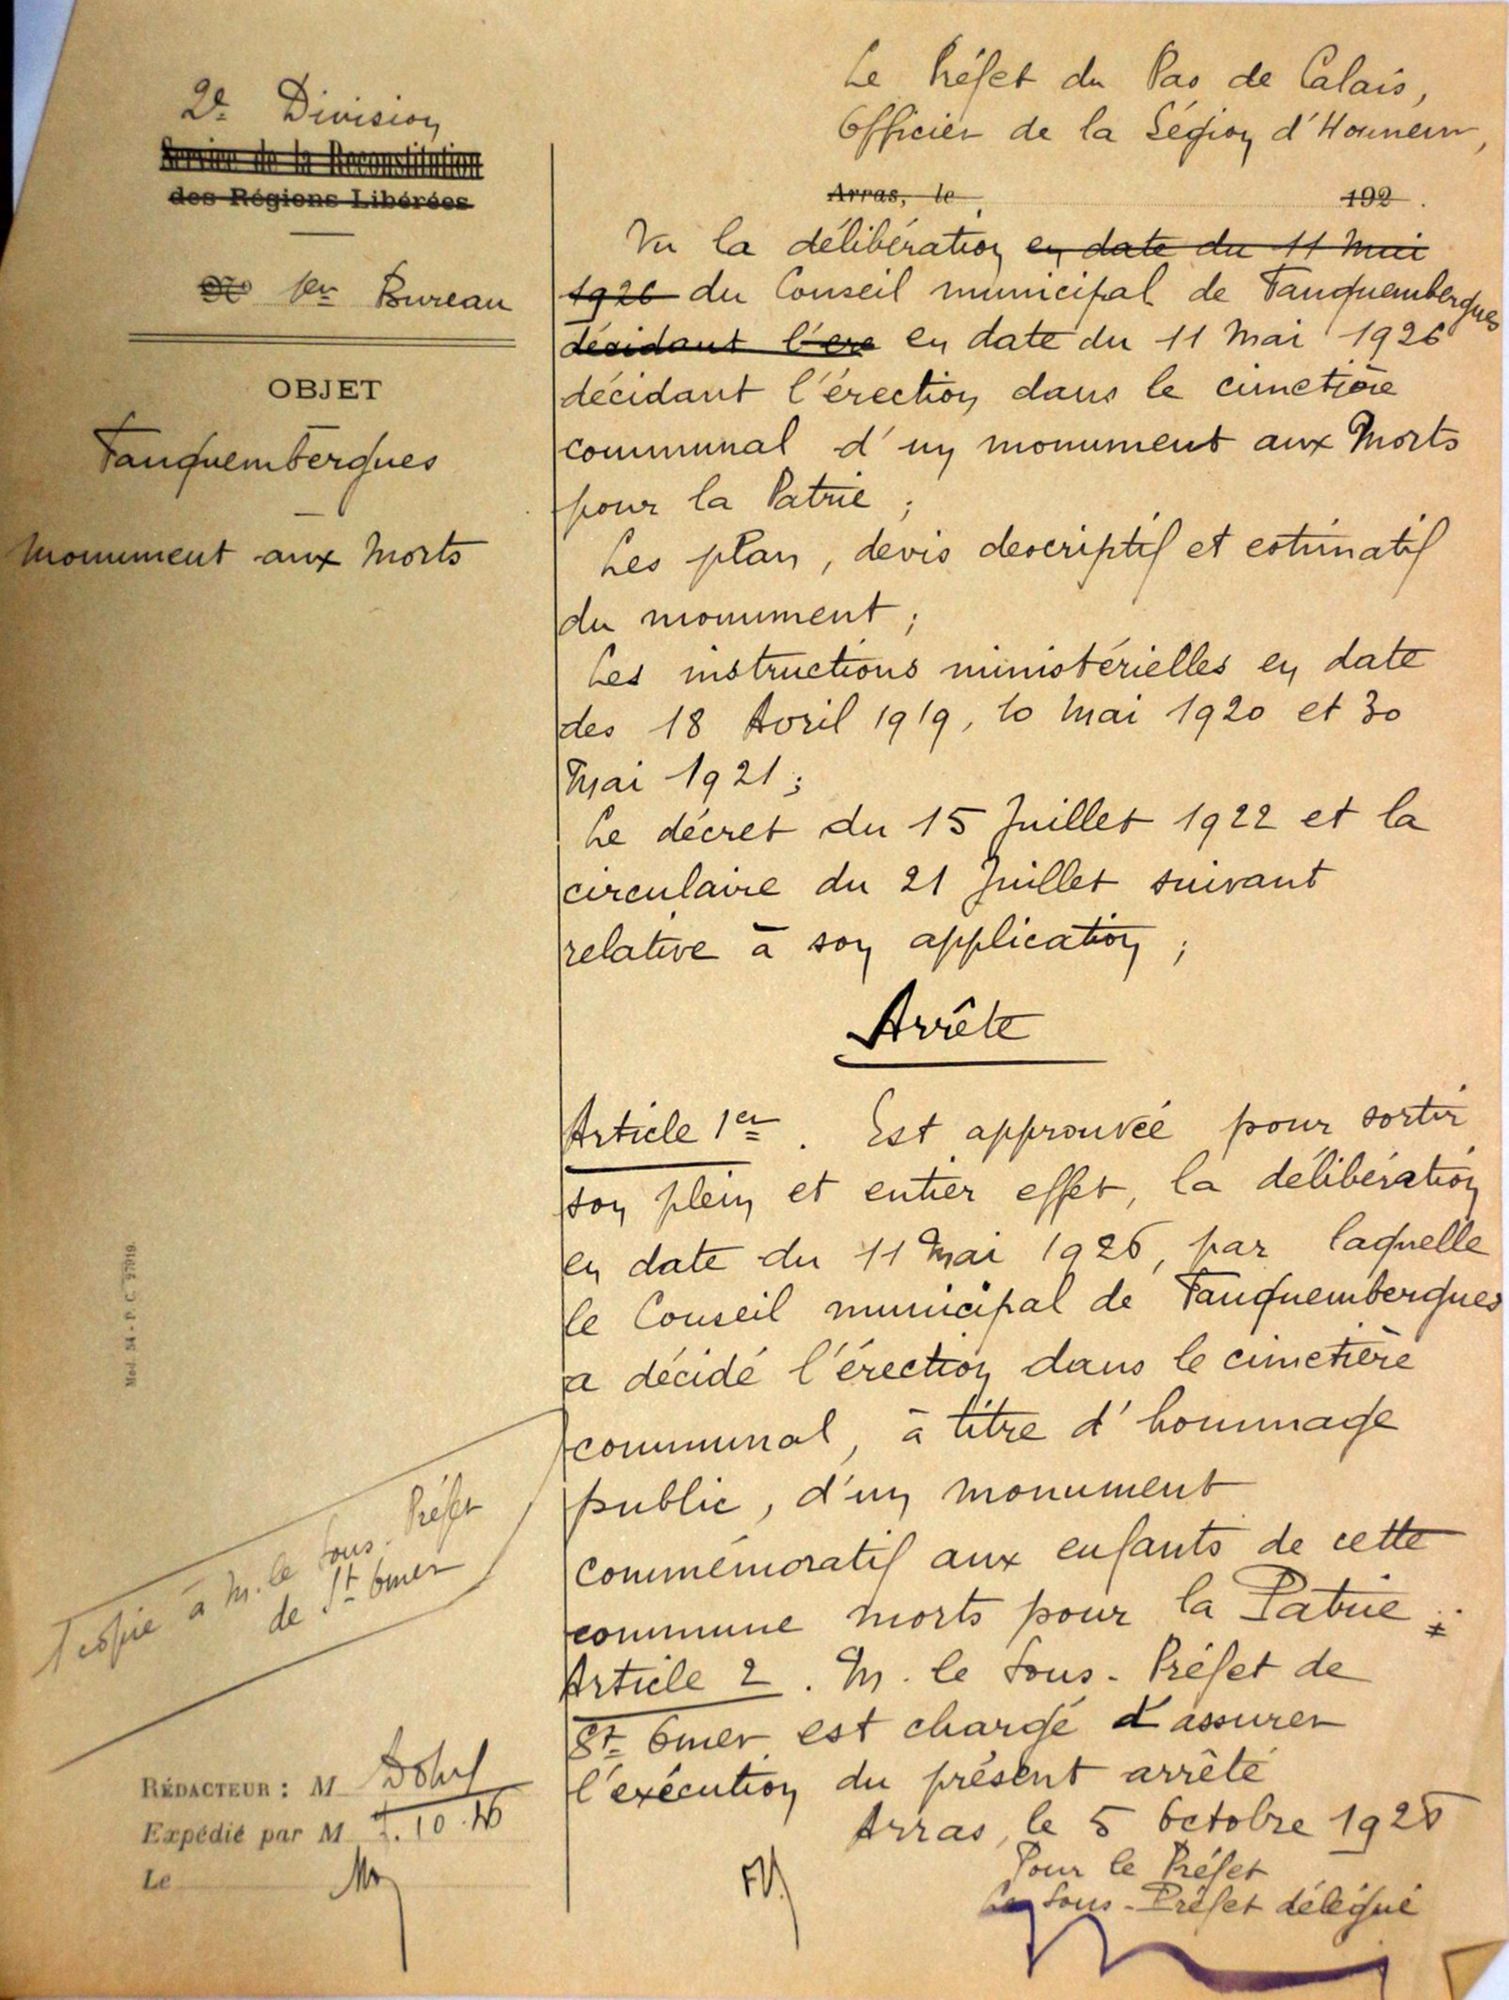 2e Division
Service de la Reconstitution
des Régions Libérées
1er Bureau
OBJET
Fauquembergues
Monument aux Morts
Le Préfet du Pas de Calais,
Officier de la Légion d'Honneur,
Arras, le 192 .
Vu la délibération en date du 11 Mai
1926 du Conseil municipal de Fauquembergues
décidant l'ere en date du 11 Mai 1926
décidant l'érection dans le cimetière
communal d'un monument aux Morts
pour la Patrie ;
Les plan, devis descriptif et estimatif
du monument ;
Les instructions ministérielles en date
des 18 Avril 1919, 10 Mai 1920 et 30
Mai 1921 ;
Le décret du 15 Juillet 1922 et la
circulaire du 21 Juillet suivant
relative à son application ;
Arrête
Article 1er . Est approuvée pour sortir
son plein et entier effet, la délibération
en date du 11 Mai 1926, par laquelle
le Conseil municipal de Fauquembergues
a décidé l'érection dans le cimetière
communal, à titre d'hommage
public, d'un monument
commémoratif aux enfants de cette
commune morts pour la Patrie .
Article 2 . M. le Sous-Préfet de
St Omer est chargé d'assurer
l'exécution du présent arrêté
Arras, le 5 Octobre 1926
Pour le Préfet
Le Sous-Préfet délégué
Mod. 54 - P. C. 97919.
1 copie à M. le Sous-Préfet
de St Omer
RÉDACTEUR : M
Expédié par M 7.10.26
Le